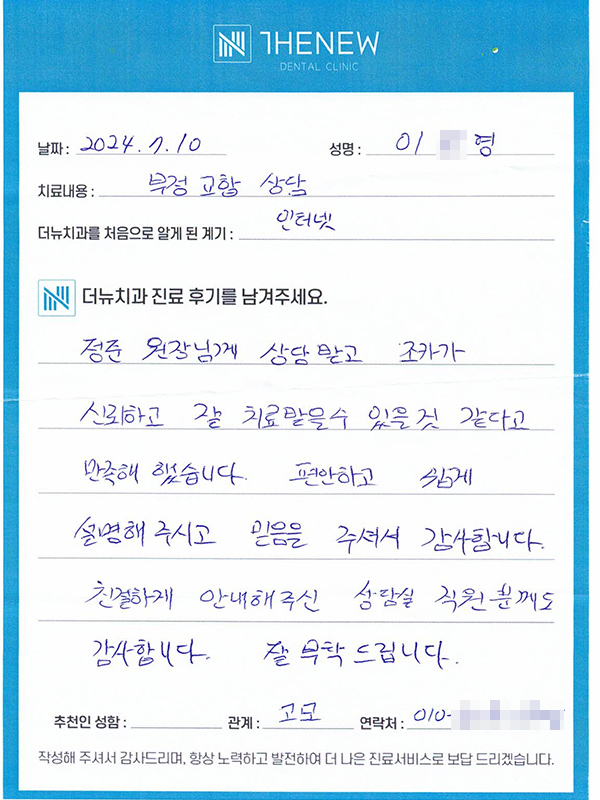 THENEW
DENTAL CLINIC
날짜 : 2024. 7. 10 성명 : 이 영
치료내용 : 부정 교합 상담
더뉴치과를 처음으로 알게 된 계기 : 인터넷
더뉴치과 진료 후기를 남겨주세요.
정준 원장님께 상담 받고 조카가
신뢰하고 잘 치료받을수 있을것 같다고
만족해 했습니다. 편안하고 쉽게
설명해 주시고 믿음을 주셔서 감사합니다.
친절하게 안내해주신 상담실 직원분께도
감사합니다. 잘 부탁 드립니다.
추천인 성함 : 관계 : 고모 연락처 : 010-
작성해 주셔서 감사드리며, 항상 노력하고 발전하여 더 나은 진료서비스로 보답 드리겠습니다.